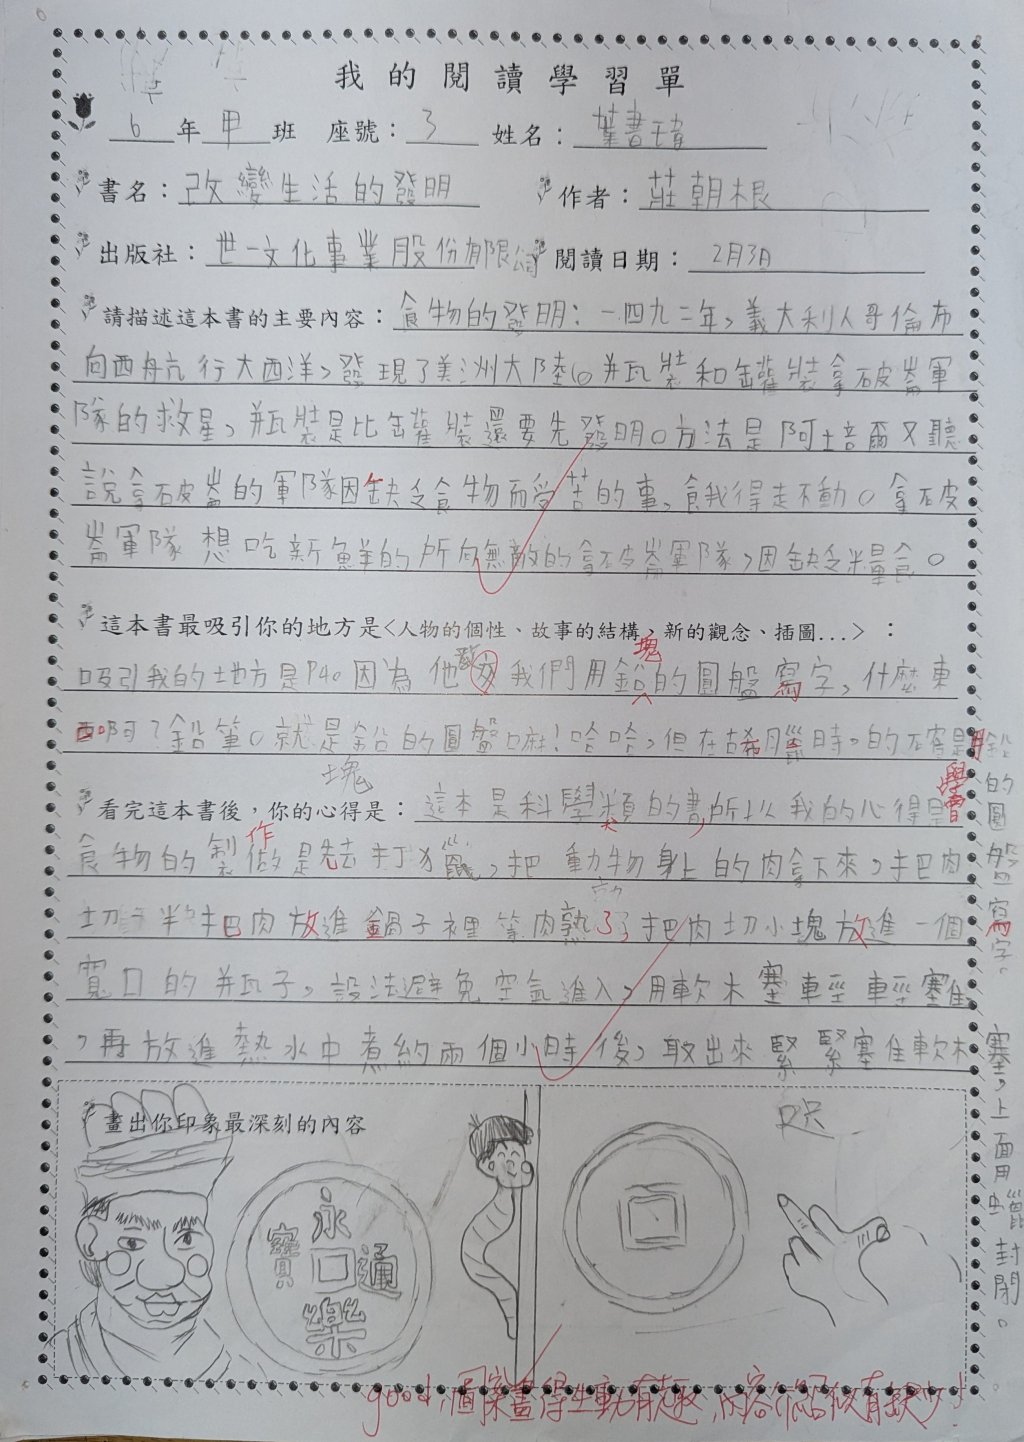 我的閱讀學習單
6年甲班 座號：3 姓名：葉書瑋
書名：改變生活的發明 作者：莊朝根
出版社：世一文化事業股份有限公司 閱讀日期：2月3日
請描述這本書的主要內容：食物的發明：一四九二年，義大利人哥倫布
向西航行大西洋，發現了美洲大陸。瓶裝和罐裝拿破崙軍
隊的救星，瓶裝是比罐裝還要先發明。方法是阿培爾又聽
說拿破崙的軍隊因缺乏食物而受苦的事，餓得走不動。拿破
崙軍隊想吃新鮮的所向無敵的拿破崙軍隊，因缺乏糧食。
這本書最吸引你的地方是<人物的個性、故事的結構、新的觀念、插圖...>：
塊
吸引我的地方是P40因為他 我們用鉛的圓盤寫字，什麼東
西啊？鉛筆。就是鉛的圓盤嘛！哈哈，但在古希臘時。的確是用鉛
的圓盤寫字。
塊
學會
看完這本書後，你的心得是：這本是科學類的書，所以我的心得是
作
食物的製做是先去打獵，把動物身上的肉拿下來，把肉
切半把肉放進鍋子裡等肉熟了把肉切小塊放進一個
寬口的瓶子，設法避免空氣進入，用軟木塞輕輕塞住
，再放進熱水中煮約兩個小時後，取出來緊緊塞住軟木
塞，上面用蠟封閉。
畫出你印象最深刻的內容
永樂通寶
good，圖案畫得生動有趣，內容介紹似有缺少！